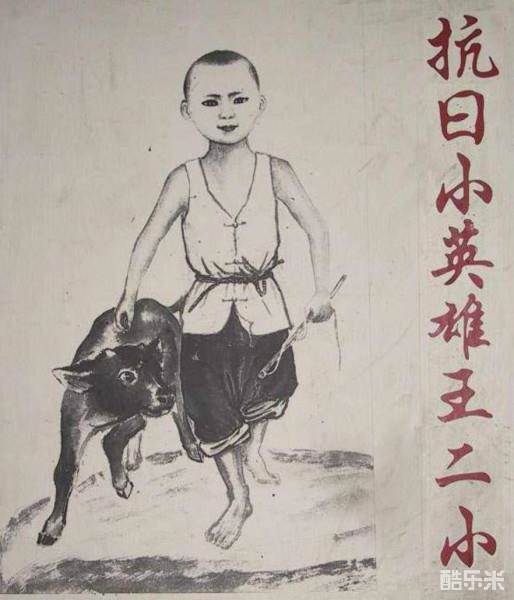 抗日小英雄王二小
酷乐米